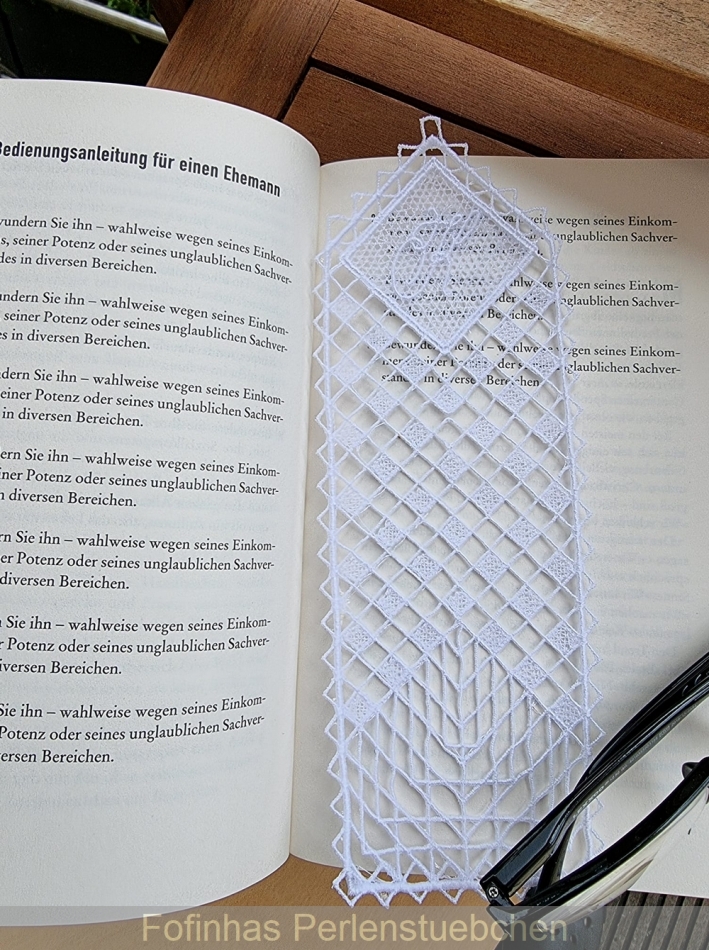 Bedienungsanleitung für einen Ehemann
wundern Sie ihn – wahlweise wegen seines Einkom-
s, seiner Potenz oder seines unglaublichen Sachver-
des in diversen Bereichen.
undern Sie ihn – wahlweise wegen seines Einkom-
seiner Potenz oder seines unglaublichen Sachver-
es in diversen Bereichen.
ndern Sie ihn – wahlweise wegen seines Einkom-
seiner Potenz oder seines unglaublichen Sachver-
in diversen Bereichen.
ern Sie ihn – wahlweise wegen seines Einkom-
iner Potenz oder seines unglaublichen Sachver-
n diversen Bereichen.
rn Sie ihn – wahlweise wegen seines Einkom-
er Potenz oder seines unglaublichen Sachver-
diversen Bereichen.
Sie ihn – wahlweise wegen seines Einkom-
r Potenz oder seines unglaublichen Sachver-
iversen Bereichen.
Sie ihn – wahlweise wegen seines Einkom-
Potenz oder seines unglaublichen Sachver-
ersen Bereichen.
wegen seines Einkom-
unglaublichen Sachver-
wegen seines Einkom-
unglaublichen Sachver-
Bereichen.
wegen seines Einkom-
oder seines unglaublichen Sachver-
in diversen Bereichen.
Fofinhas Perlenstuebchen